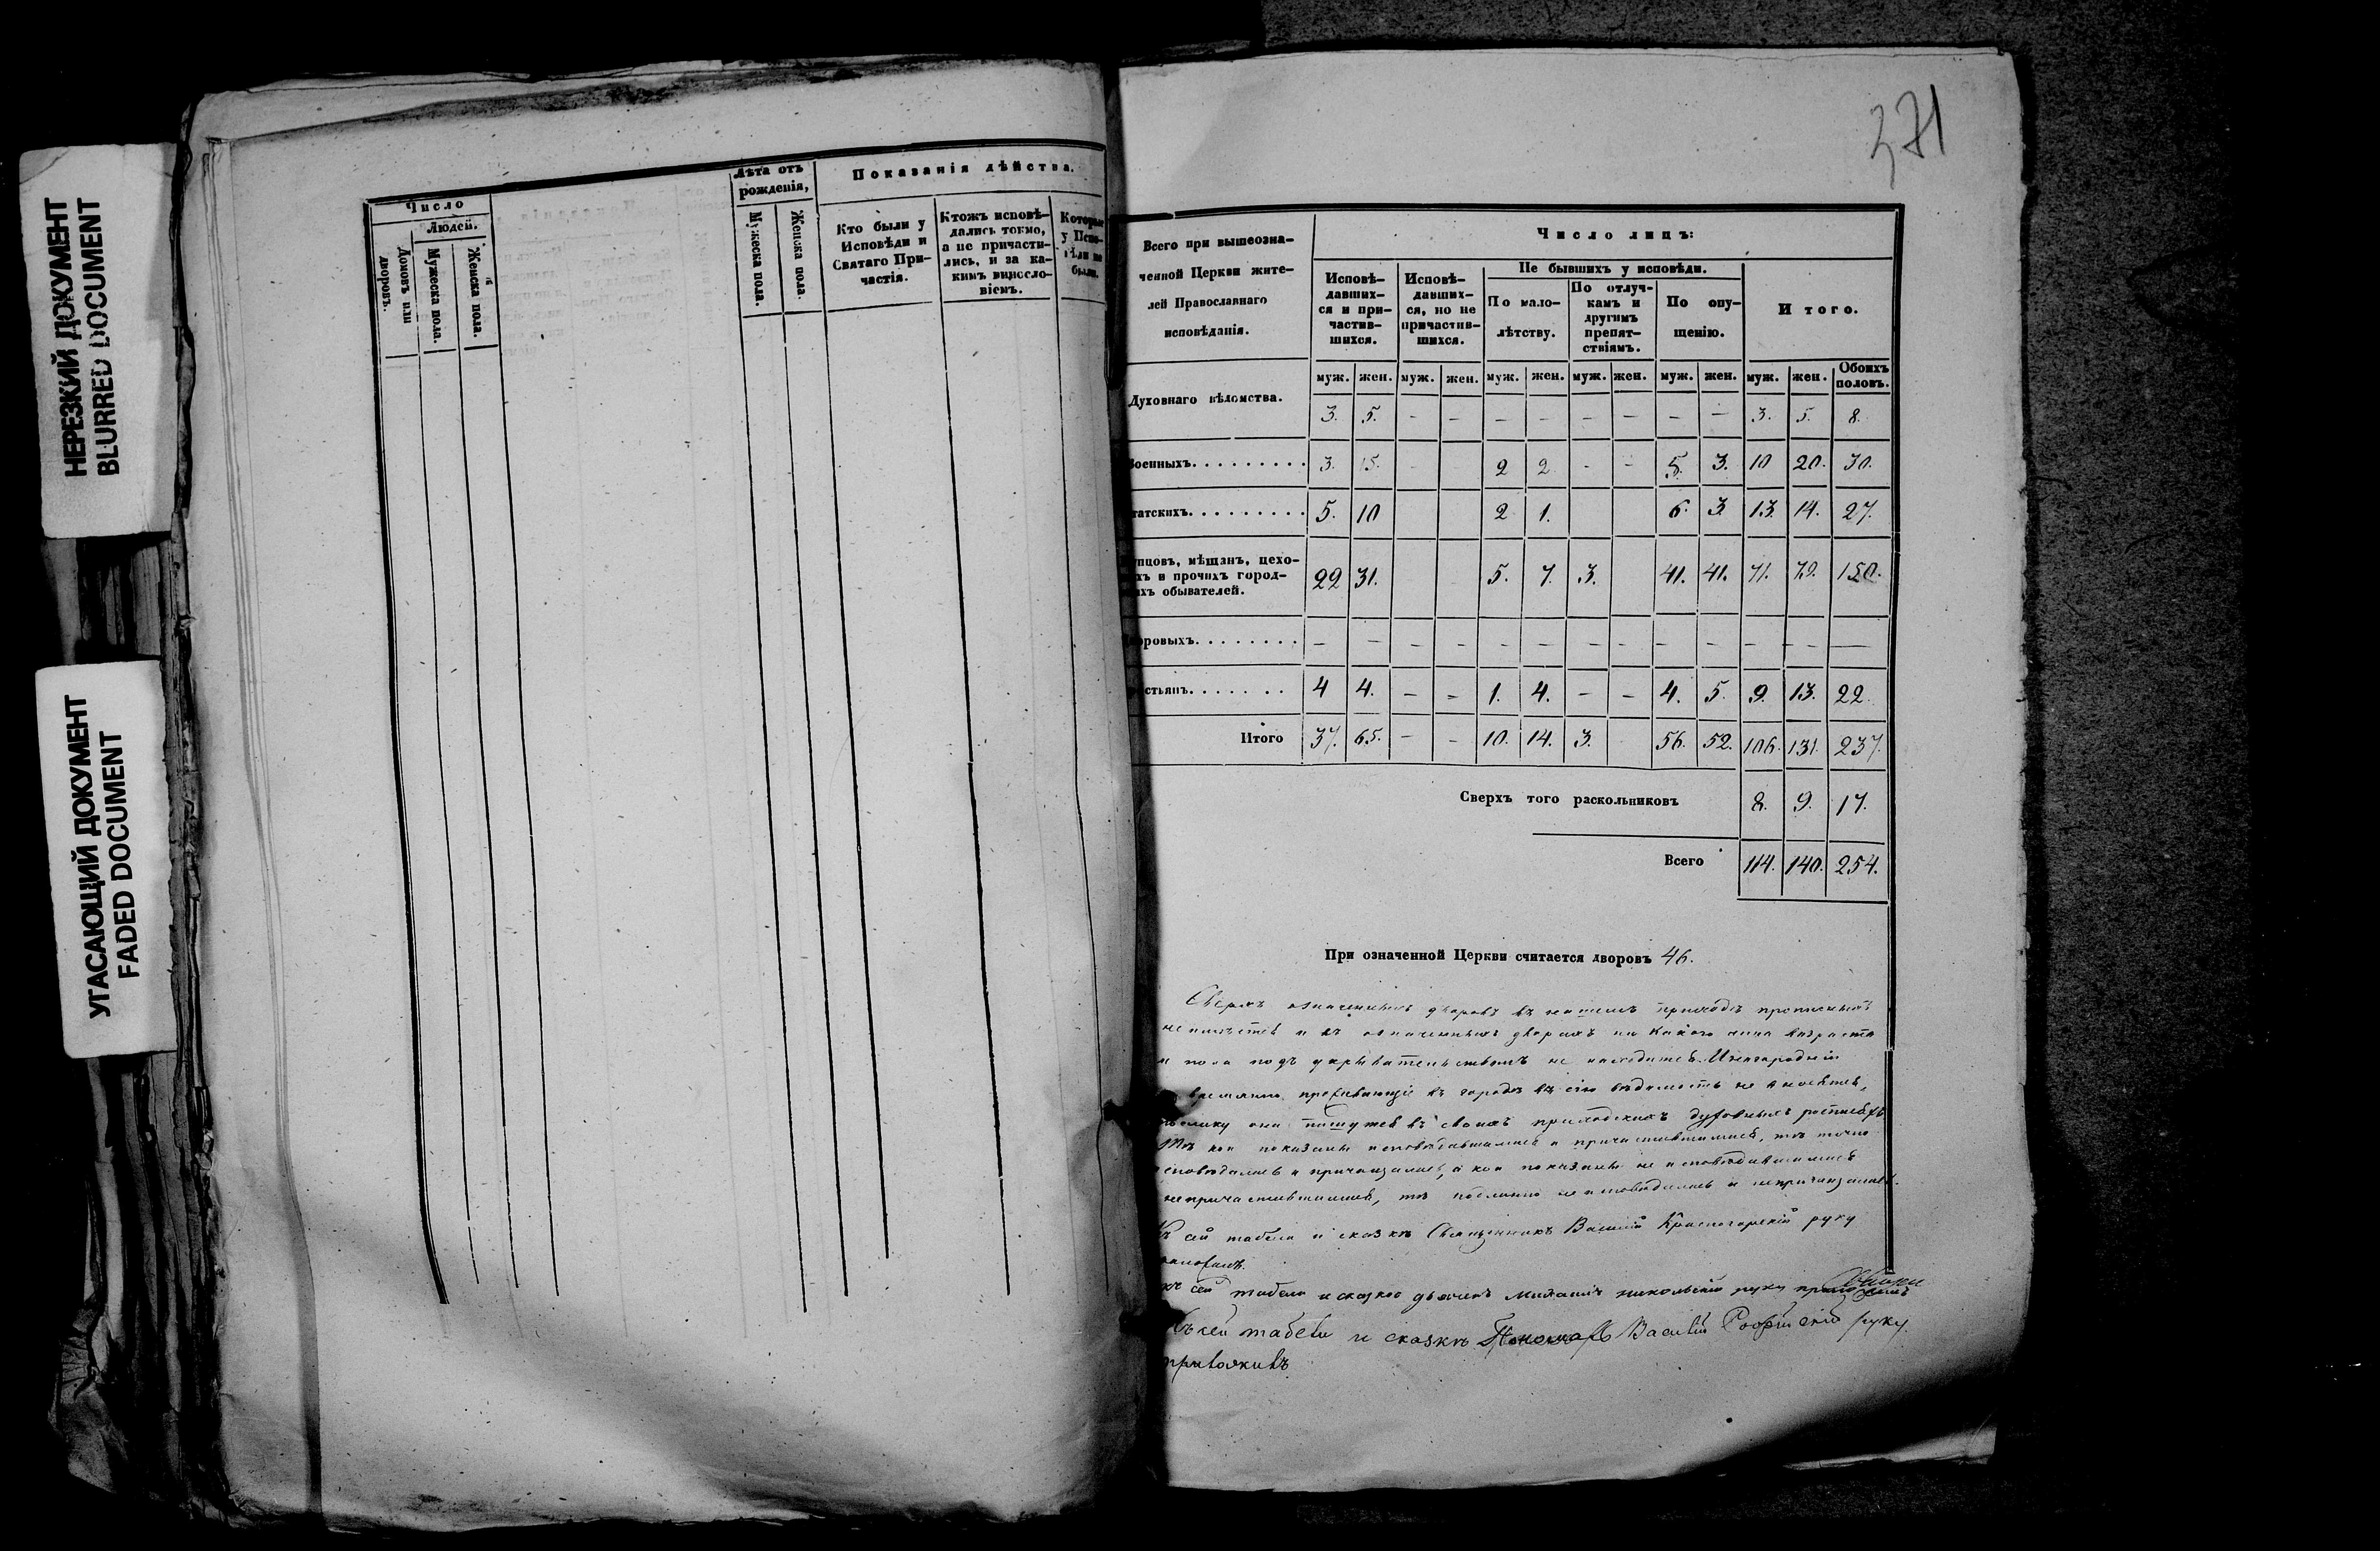 НЕРЕЗКИЙ ДОКУМЕНТ
BLURRED DOCUMENT
УГАСАЮЩИЙ ДОКУМЕНТ
FADED DOCUMENT
Число
Людей.
Домовъ или дворовъ.
Мужеска пола.
Женска пола.
Лѣта отъ рожденія,
Мужеска пола.
Женска пола.
Показанія дѣйства.
Кто были у
Исповѣди и
Святаго При-
частія.
Ктожъ исповѣ-
дались токмо,
а не причасти-
лись, и за ка-
кимъ виносло-
віемъ.
Которые
у Испо-
вѣди не
были.
371
Всего при вышеозна-
ченной Церкви жите-
лей Православнаго
исповѣданія.
Число лицъ:
Исповѣ-
давших-
ся и при-
частив-
шихся.
Исповѣ-
давших-
ся, но не
причастив-
шихся.
Не бывшихъ у исповѣди.
По мало-
лѣтству.
По отлуч-
камъ и
другимъ
препят-
ствіямъ.
По опу-
щенію.
Итого.
муж. жен. муж. жен. муж. жен. муж. жен. муж. жен. муж. жен. Обоихъ половъ.
Духовнаго вѣдомства. 3. 5. – – – – – – – – 3. 5. 8.
военныхъ. 3. 15. - 2 2 - - 5. 3. 10 20. 30.
татскихъ. 5. 10 2 1. 6. 3 13. 14. 27.
упцовъ, мѣщанъ, цехо-
хъ и прочихъ город-
ихъ обывателей. 22 31. 5. 7. 3. 41. 41. 71. 79. 150.
оровыхъ. – – – – – – – – – – – – –
стьянъ. 4 4. – – 1. 4. – – 4. 5. 9. 13. 22
Итого 37. 65. – – 10. 14. 3. 56. 52. 106. 131. 237.
Сверхъ того раскольниковъ 8. 9. 17.
Всего 114. 140. 254.
При означенной Церкви считается дворовъ 46.
Сверхъ означенныхъ дворовъ въ нашемъ приходѣ прописныхъ
и въ означенныхъ дворахъ ни какого чина возраста
и пола подъ укрывательствомъ не находится. Иногородніи
временно проживающіе въ городѣ въ сію вѣдомость не вносятся,
они пишутся въ своихъ приходскихъ духовныхъ росписяхъ
Тѣ кои показаны исповѣдавшимися и причастившимися, тѣ точно
исповѣдались и причащались, а кои показаны не исповѣдавшимися
непричастившимися, тѣ подлинно не исповѣдались и непричащались.
Къ сей табели и сказкѣ Священникъ Василій Красногорскій руку
приложилъ.
къ сей табели и сказкѣ дьячекъ Михаилъ Никольскій руку приложилъ
Къ сей табели и сказкѣ Пономарь Василій руку
приложилъ